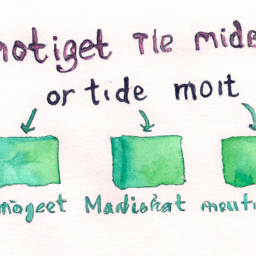 notiget Tle mide
or tide moit
miogeet Madishat meuti